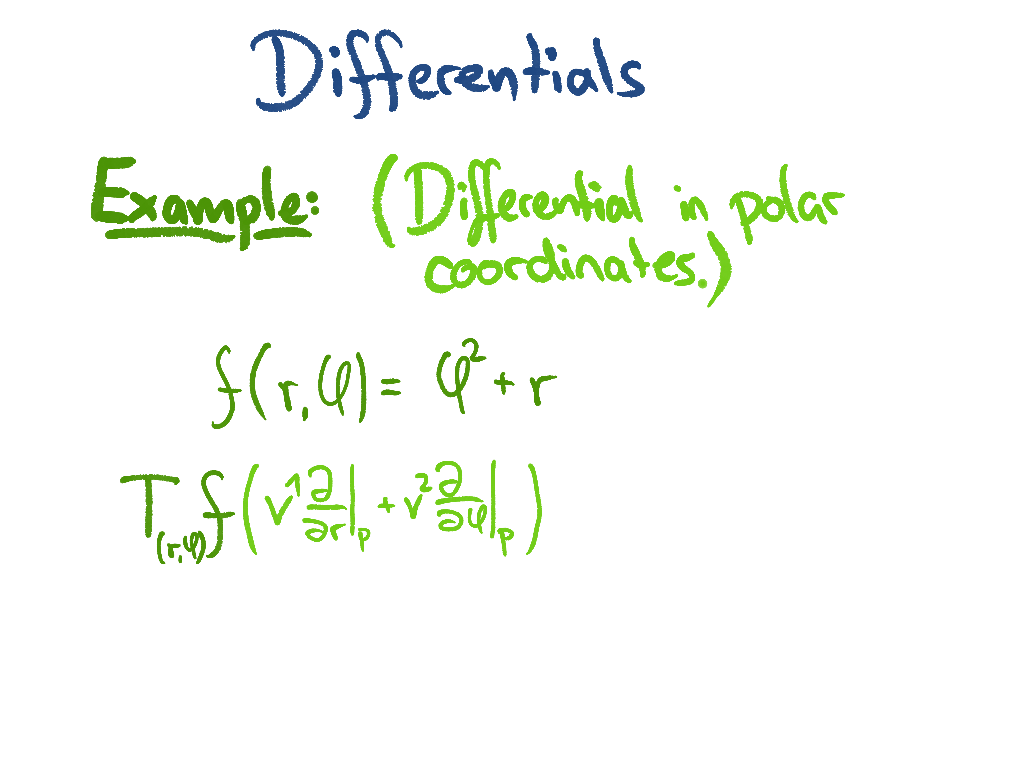 Differentials
Example: (Differential in polar
coordinates.)
f(r,φ) = φ² + r
T_(r,φ) f(v¹ ∂/∂r|_p + v² ∂/∂φ|_p)